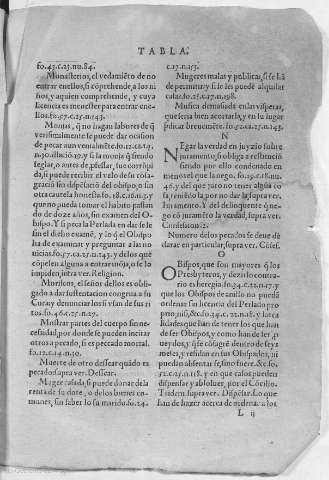 TABLA.
fo.43.c.25.nu.84.
Monasterios, el vedamiẽto de no
entrar enellos, si cõprehende, a los ni
ños, y a quien comprehende, y cuya
licencia es menester para entrar ene
llos. fo.97.c.25.nu.143.
Monjas, q̃ no hagan labores de q̃
verisimelmente se puede dar ocasion
de pecar aun venialmẽte. fo.12.c.19.
si puede recibir el velo de su cõsa
graciõ sin dispẽsaciõ del obispo, ni sin
otra cautela honesta. fo.18.c.16.n.3. y
que no pueda tomar el habito passan
do de doze años, sin examen del O-
bispo. Y si peca la Perlada en dar se le
sin el dicho examẽ, y lo q̃ el Obispo
ha de examinar y preguntar a las no
uicias. fo.97.ca.25.nu.145. y delos que
cõpelen alguna a entrar mõja, o se lo
impiden, infra ver. Religion.
Moriscos, el señor dellos es obli-
gado a dar sustentacion congrua a su
Cura y denunciar los si vsan de sus ri
tos. fo.46.c.25.n.27.
Mostrar partes del cuerpo sin ne-
cessidad, por donde se pueden incitar
otros a pecado, si es peccado mortal.
fo.12.c.14.n.30.
Muerte de otro dessear quãdo es
pecado supra ver. Dessear.
Muger casada, si puede donar de la
renta de su dote, o delos bienes co-
munes, sin saber lo su marido. fo.24.
c.17.n.153.
Mugeres malas y publicas, si se hã
de permitir y si se les puede alquilar
casa. fo.55.c.27.n.198.
Musica demasiada en las visperas,
que seria bien acortarla, y en su lugar
pdicar breuemẽte. fo.92.ca.25.nu.143.
N
NEgar la verdad en juyzio sobre
juramento, si obliga a restituciõ
siendo por ello condenado en
menos el que la nego. fo.19.c.18.nu.
46. y del que juro no tener algũa co
sa siendo la por no dar la, supra ver.
Iuramento. Y del delinquente q̃ nie-
ga cõ juramẽto la verdad, supra ver.
Confession. 21.
Numero delos pecados se deue dẽ
clarar en particular, supra ver. Cõfes.
O
OBispos, que son mayores q̃ los
Presbyteros, y dezir lo contra-
rio es heregia. fo.34.c.22.n.17. y
que los Obispos de anillo no puedã
ordenar sin licencia del Perlado pro
prio, ni &c. fo.34.c.22.n.18. y las ca
lidades que han de tener los que han
de ser Obispos, y como han de ser, p
ueydos, y q̃ se cõsagrẽ dentro de seys
meses, y residan en sus Obispados, ni
puedan absentar se, sino fuere. &c. fo.
72.c.25.n.118. y en que casos pueden
dispensar y absoluer, por el Cõcilio.
Tridem. supra ver. Dispẽsar. Lo que
han de hazer acerca de ordena. a los
L ij